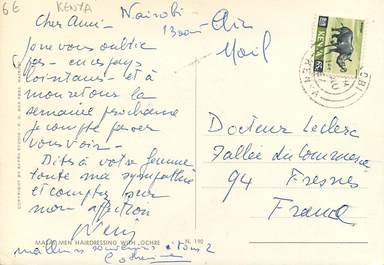 6E KENYA
Cher Ami - Nairobi
13 août Air
Mail
Je ne vous oublie
pas - en ces pays
lointains - et à
mon retour la
semaine prochaine
je compte passer
vous voir -
Dites à votre femme
toute ma sympathie
et comptez sur
mon affection
KENYA
Docteur Leclerc
7 allée du Commerce
94 Fresnes
France
MASAI MEN HAIRDRESSING WITH OCHRE N. 190
meilleurs souvenirs à tous 2